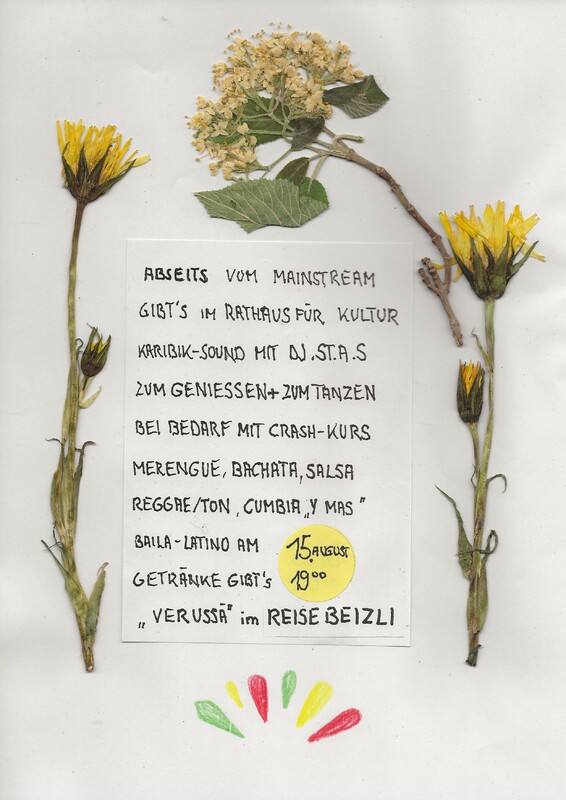 ABSEITS VOM MAINSTREAM
GIBT'S IM RATHAUS FÜR KULTUR
KARIBIK-SOUND MIT DJ.ST.A.S
ZUM GENIESSEN+ZUM TANZEN
BEI BEDARF MIT CRASH-KURS
MERENGUE, BACHATA, SALSA
REGGAE/TON, CUMBIA „Y MAS"
BAILA-LATINO AM 15. AUGUST
19⁰⁰
GETRÄNKE GIBT'S
„VERUSSÄ" im REISEBEIZLI